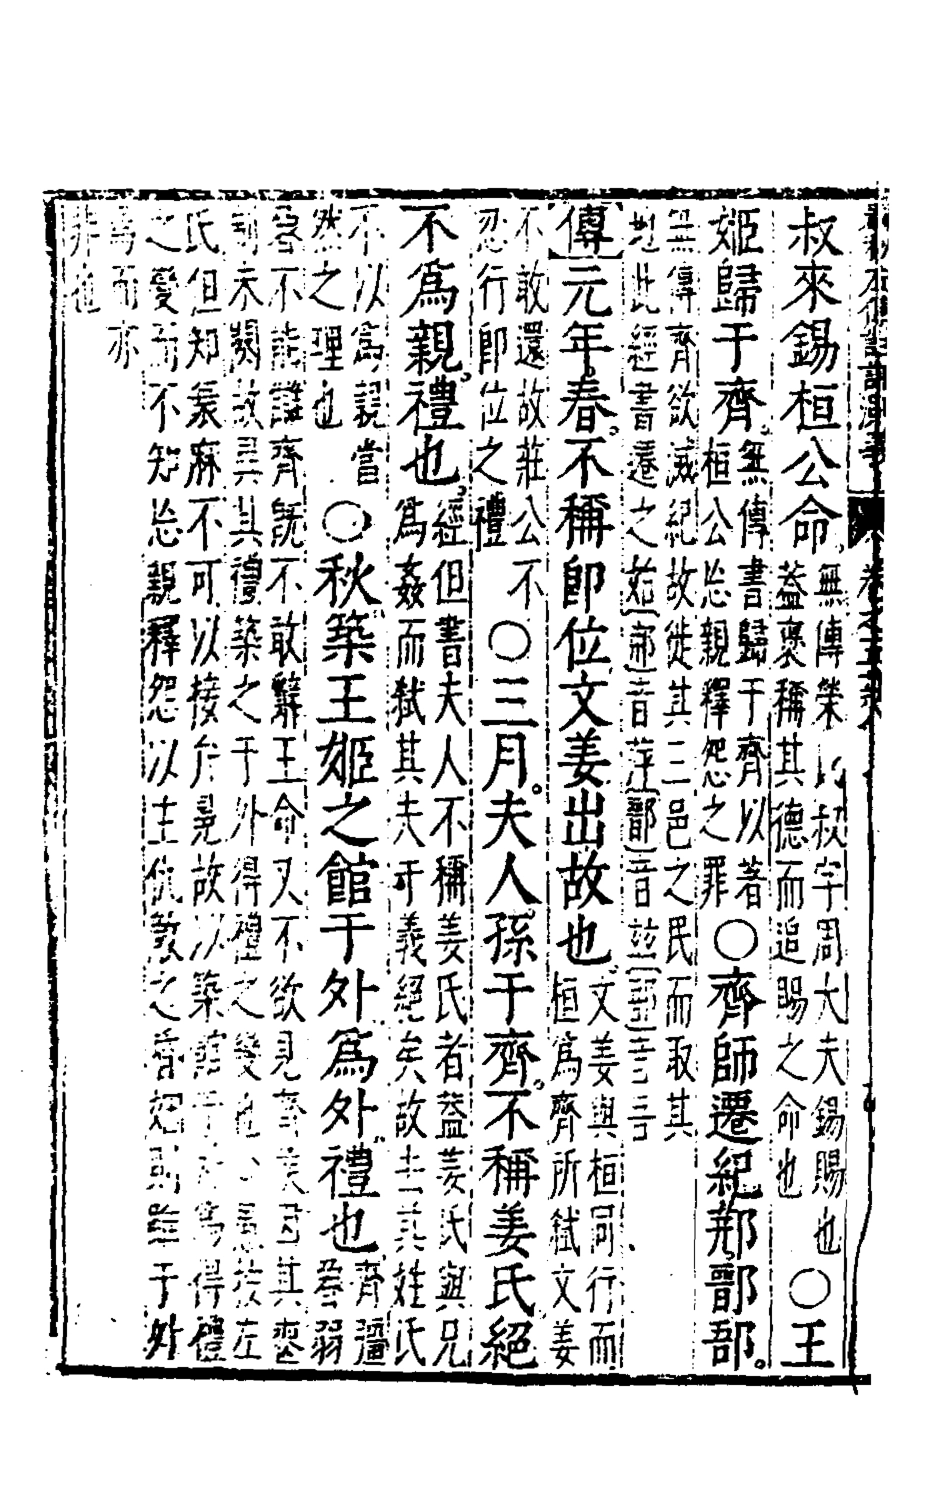 叔來錫桓公命無傳榮叔字周大夫錫賜也蓋褒稱其德而追賜之命也○王
姬歸于齊無傳書歸于齊以著桓公忘親釋怨之罪○齊師遷紀郱鄑郚
無傳齊欲滅紀故徙其三邑之民而取其
地此經書遷之始郱音萍鄑音
傳元年春不稱卽位文姜出故也文姜與桓同行而桓爲齊所弑文姜
不敢還故莊公不忍行卽位之禮○三月夫人孫于齊不稱姜氏絕
不爲親禮也經但書夫人不稱姜氏者蓋姜氏與兄爲姦而弑其夫于義絕矣故去其姓氏
不以爲親當然之理也○秋築王姬之館于外爲外禮也齊彊魯弱
不敢辭王命又不欲見齊
故異其禮築之于外得禮之變也
氏但知衰麻不可以接弁冕故以築館于外爲得禮
之變而不知忘親釋怨以主仇讎之昏姻則雖于外
爲而亦
非也